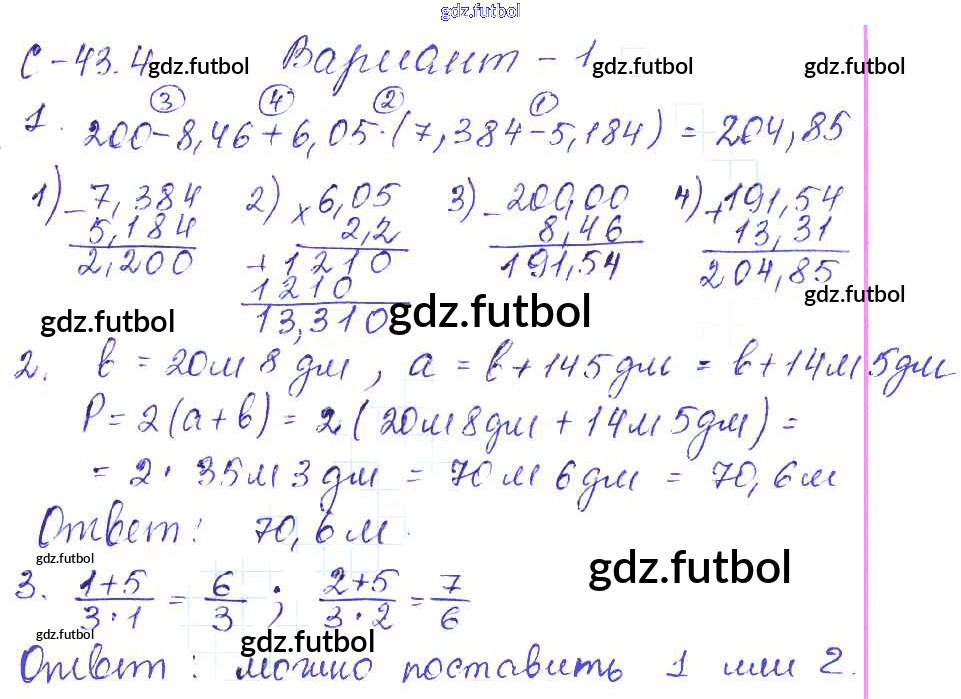 gdz.futbol
С-43.4 gdz.futbol Вариант - 1 gdz.futbol gdz.futbol
③ ④ ② ①
1. 200-8,46+6,05·(7,384-5,184) = 204,85
1) -7,384 2) ×6,05 3) -200,00 4) +191,54
5,184 2,2 8,46 13,31
2,200 +1210 191,54 204,85
1210 gdz.futbol
gdz.futbol 13,310 gdz.futbol
2. в = 20м 8 дм, а = в+145дм = в+14м 5дм
P = 2(а+в) = 2(20м8дм+14м5дм) =
= 2·35м3дм = 70м 6дм = 70,6м
Ответ: 70,6м.
gdz.futbol gdz.futbol
3. 1+5/3·1 = 6/3; 2+5/3·2 = 7/6
gdz.futbol gdz.futbol
Ответ: можно поставить 1 или 2.